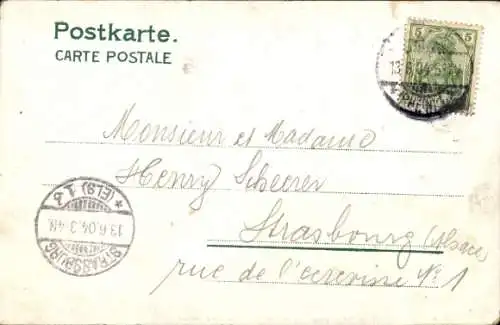 Postkarte.
CARTE POSTALE
5 5
13.6.04
Monsieur et Madame
Henry Scheerer
Strasbourg (Alsace)
rue de l'ecrevisse N° 1
STRASSBURG
13.6.04.3-4N.
* (ELS) 1.b